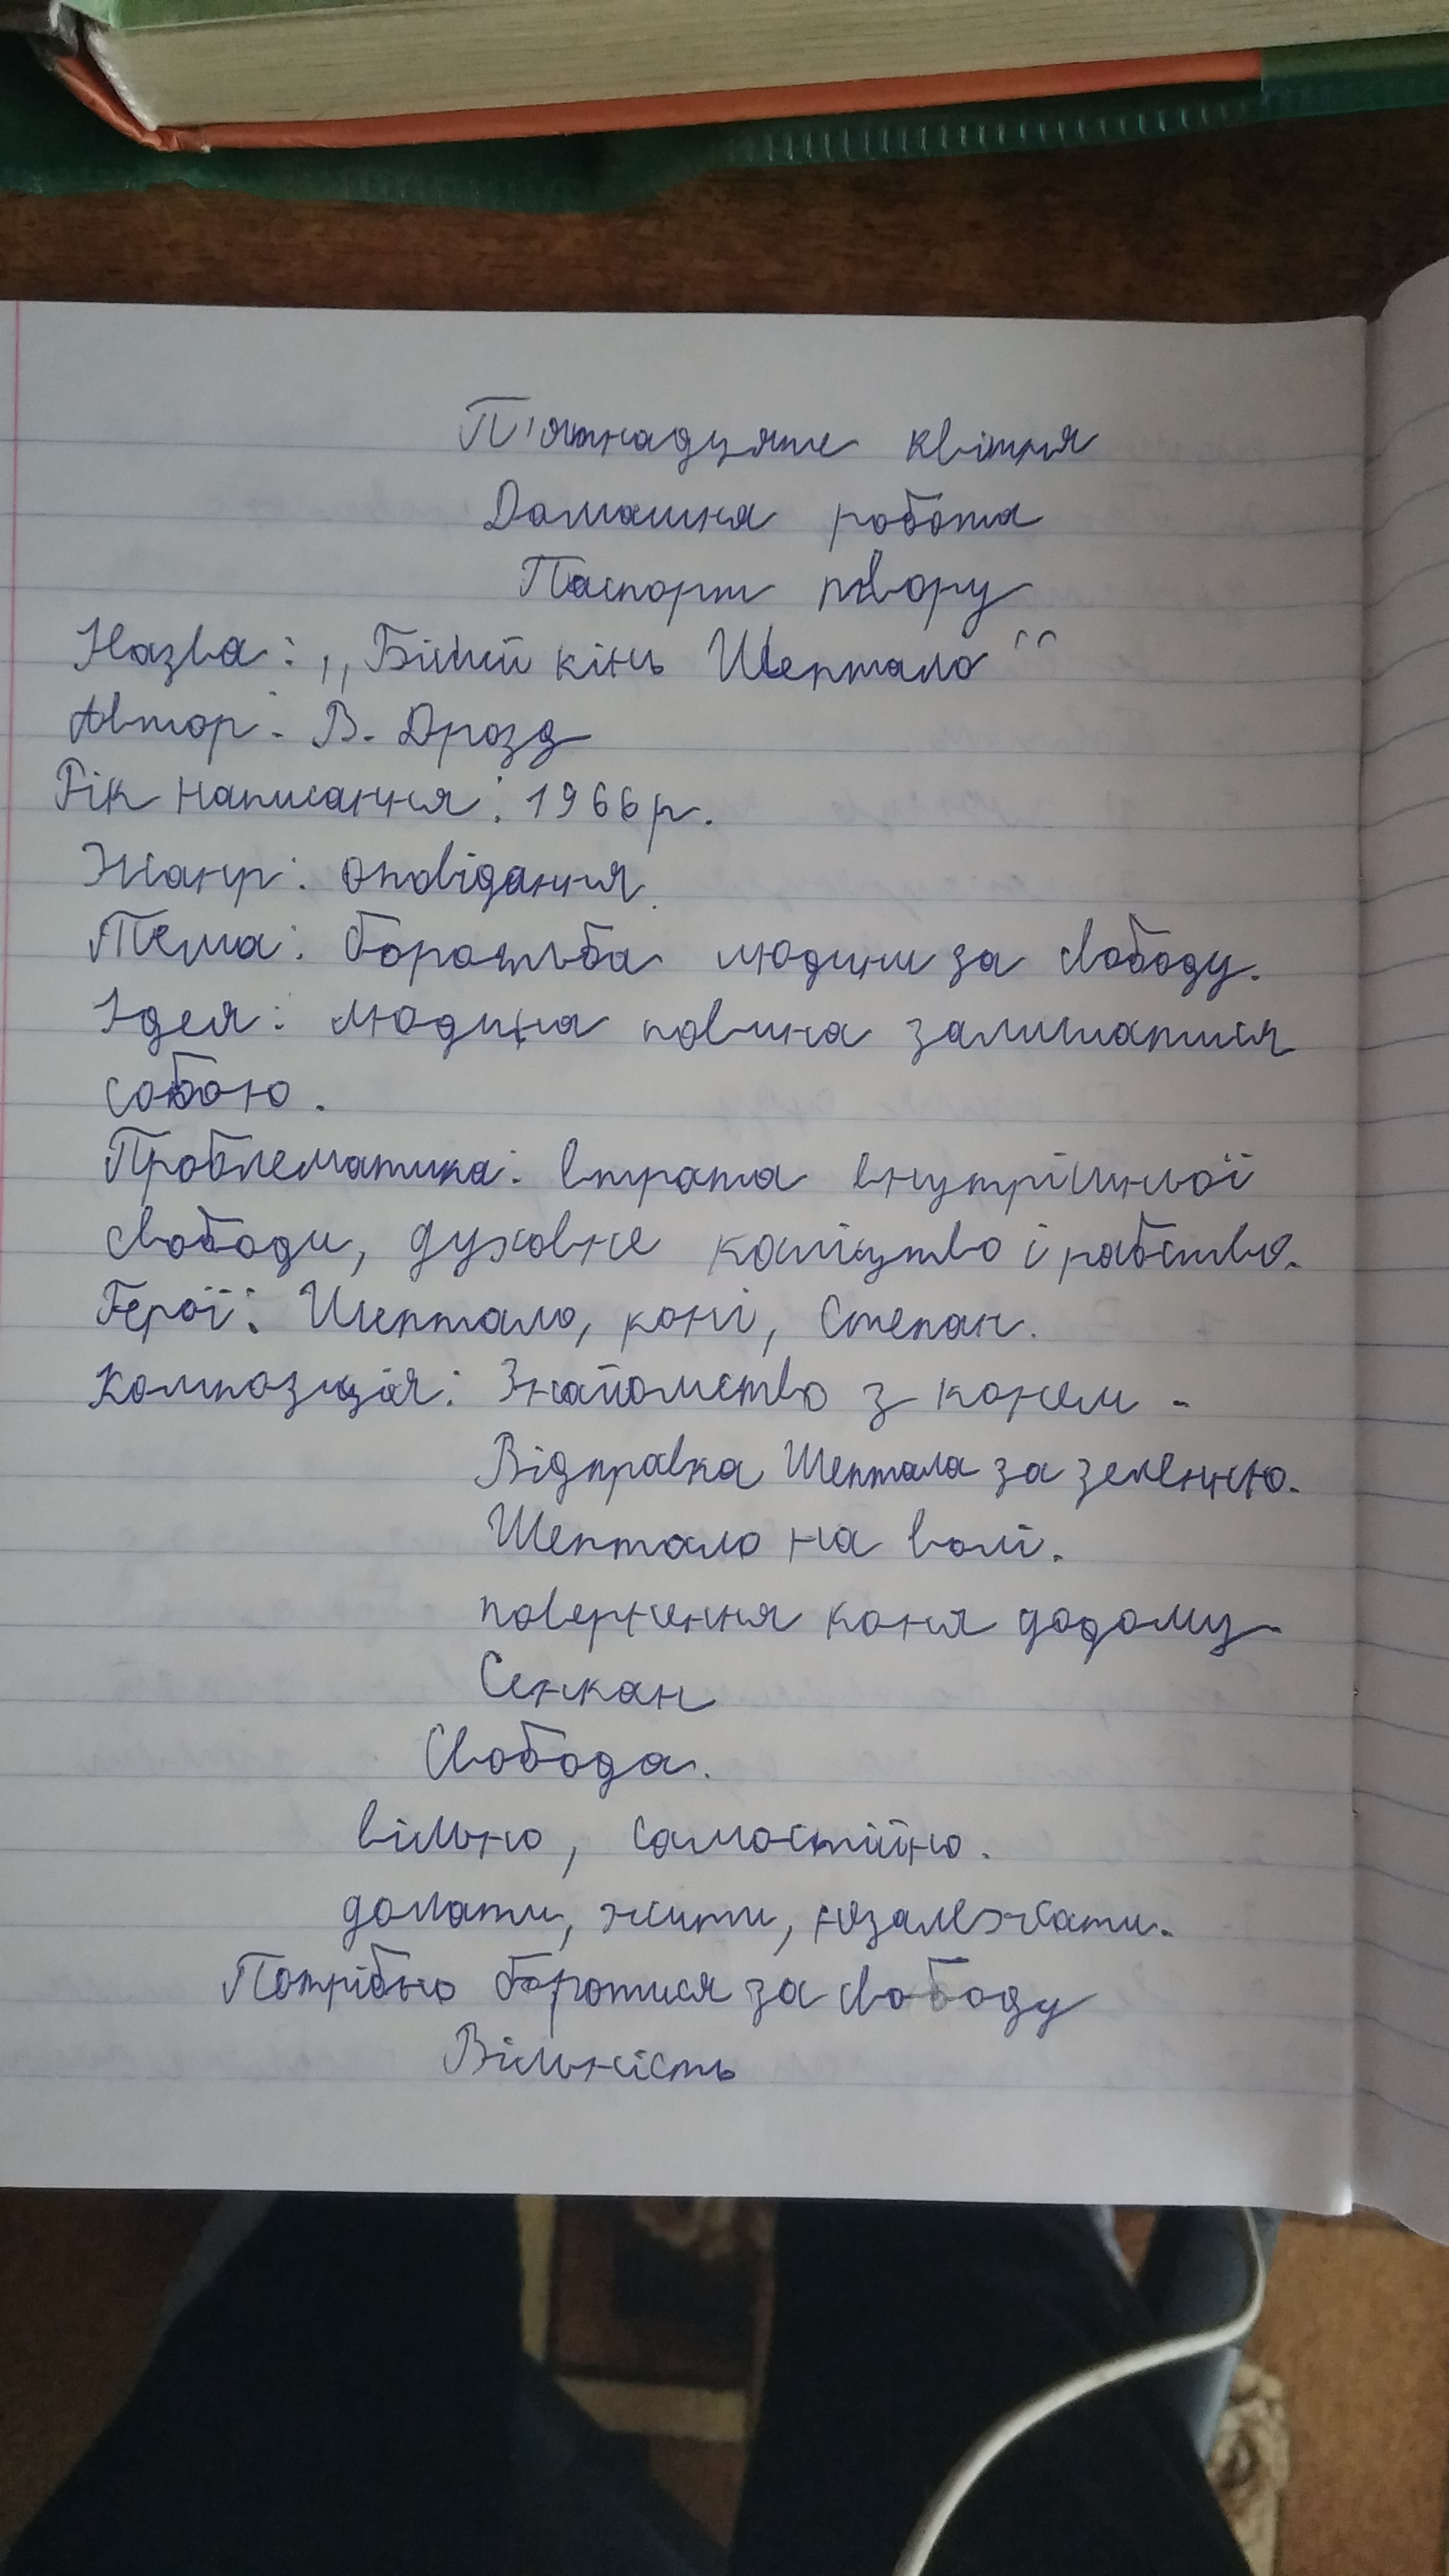 П'ятнадцяте квітня
Домашня робота
Паспорт твору
Назва: ,,Білий кінь Шептало"
Автор: В. Дрозд
Рік написання: 1966 р.
Жанр: оповідання.
Тема: боротьба людини за свободу.
Ідея: людина повина залишатися
собою.
Проблематика: втрата внутрішньої
свободи, духовне каліцтво і рабство.
Герої: Шептало, коні, Степан.
Композиція: Знайомство з конем.
Відправка Шептала за зеленцею.
Шептало на волі.
повернення коня додому.
Сенкан
Свобода.
вільно, самостійно.
долати, жити, незалежати.
Потрібно боротися за свободу
Вільність